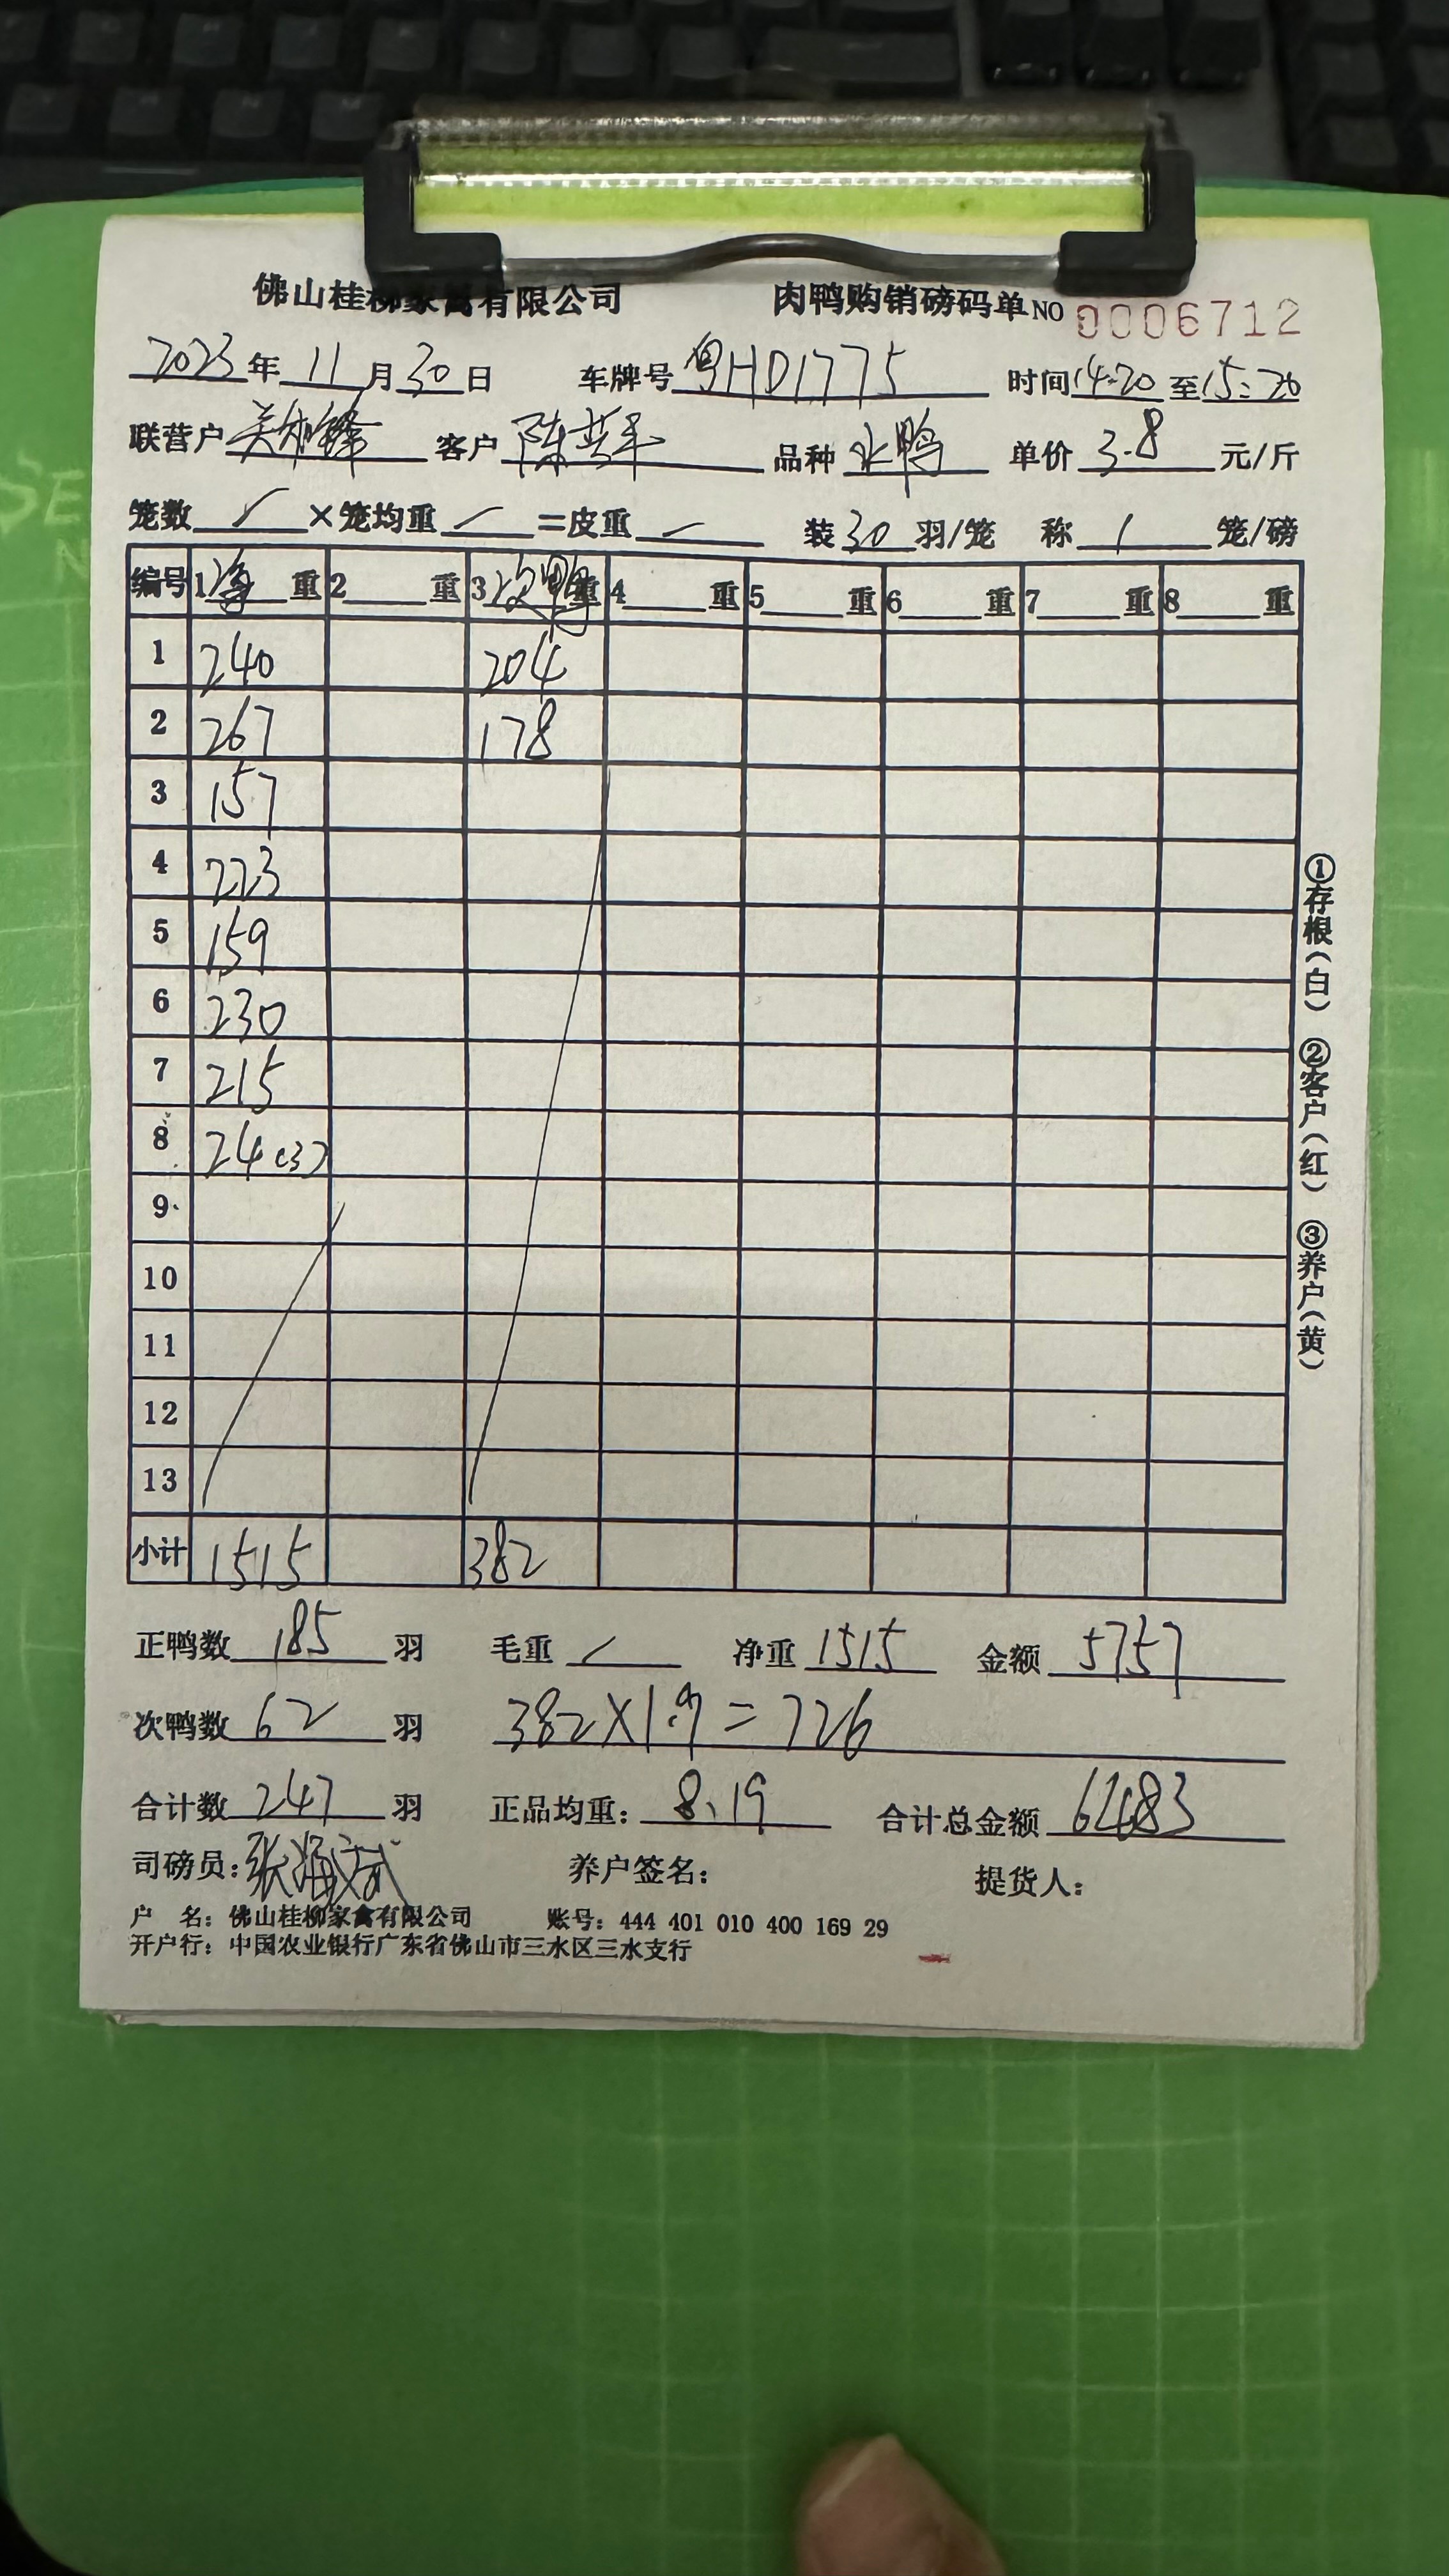 佛山桂柳家禽有限公司 肉鸭购销磅码单 NO 0006712
2023年 11月 30日 车牌号 粤HD1775 时间 14:20 至 15:20
联营户 客户 品种 鸭 单价 3.8 元/斤
笼数 / ×笼均重 / =皮重 / 装 30 羽/笼 称 1 笼/磅
编号 1 净 重 2 重 3 次鸭 重 4 重 5 重 6 重 7 重 8 重
1 240 204
2 267 178
3 157
4 223
5 159
6 230
7 215
8 24(3)
9
10
11
12
13
小计 1515 382
正鸭数 185 羽 毛重 / 净重 1515 金额 5757
次鸭数 62 羽 382×1.9=726
合计数 247 羽 正品均重: 8.19 合计总金额 6483
司磅员: 张 养户签名: 提货人:
户 名: 佛山桂柳家禽有限公司 账号: 444 401 010 400 169 29
开户行: 中国农业银行广东省佛山市三水区三水支行
①存根(白) ②客户(红) ③养户(黄)